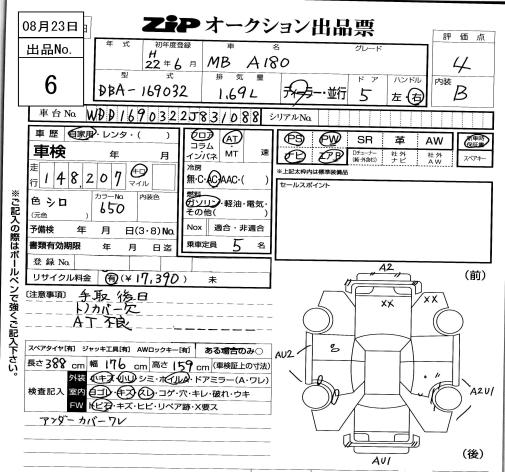 08月23日
出品No.
6
ZiP オークション出品票
年式 初年度登録 車名 グレード
H 22年6月 MB A180
評価点
4
型式 排気量 ドア ハンドル
DBA-169032 1.69L ディーラー・並行 5 左・右
内装
B
車台No. WDD1690322J831088 シリアルNo.
車歴 自家用・レンタ・( )
車検 年 月
走行 148,207 キロ マイル
色 シロ (元色) カラーNo. 650 内装色
予備検 年 月 日(3・8)No.
書類有効期限 年 月 日迄
登録No.
リサイクル料金 有(¥17,390) 未
フロア コラム インパネ AT・MT 速
冷房
無・C・AC・AAC・( )
燃料
ガソリン・軽油・電気・その他( )
Nox 適合・非適合
乗車定員 5名
PS PW SR 革 AW
ナビ エアB 社外ナビ 社外AW
スペアキー
※上記太枠内は標準装備品
セールスポイント
(注意事項) 手取 後日
トノカバー欠
AT 不良
スペアタイヤ[有] ジャッキ工具[有] AWロックキー[有] ある場合のみ○
長さ388cm 幅176cm 高さ159cm (車検証上の寸法)
検査記入
外装 小キズ・小凹・シミ・ホイルA・ドアミラー(A・ワレ)
室内 ヨゴレ・キズ・スレ・コゲ・穴・キレ・破れ・ウキ
FW トビ石・キズ・ヒビ・リペア跡・X要ス
アンダーカバーワレ
※ご記入の際はボールペンで強くご記入下さい。
(前)
A2
XX
XX
AU2
A2U1
AU1
(後)